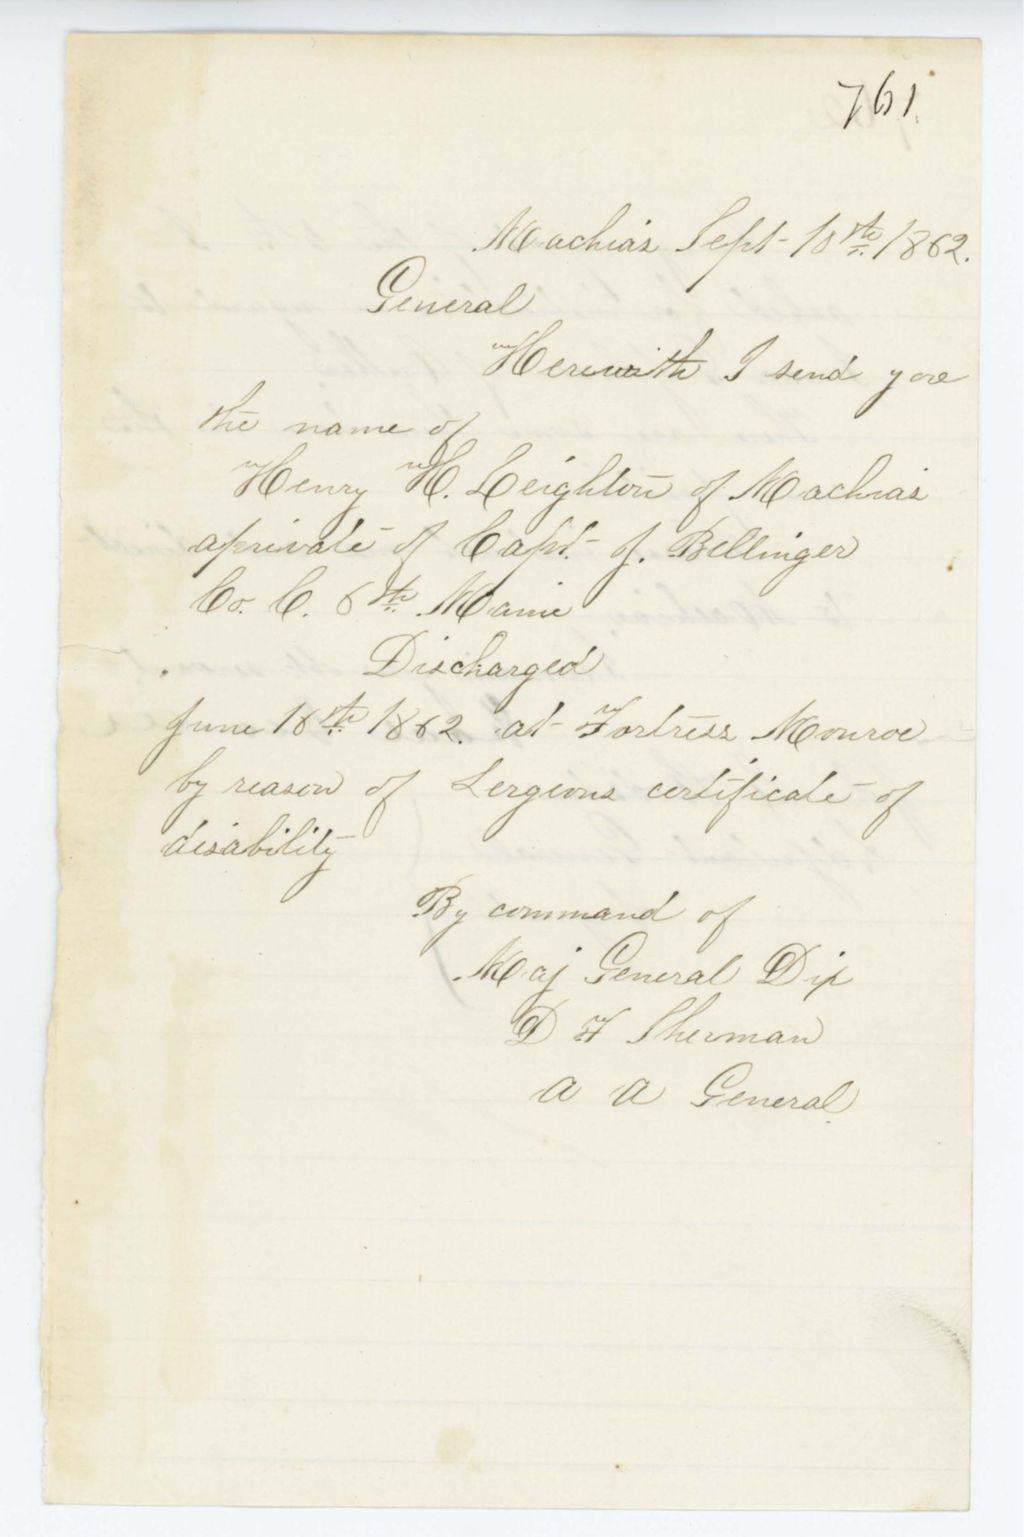 761.
Machias Sept 10th 1862.
General
Herewith I send you
the name of
Henry H. Leighton of Machias
aprivate of Capt. J. Bellinger
Co. C. 6th Maine
Discharged
June 16th 1862. at Fortress Monroe
by reason of Sergeons certificate of
disability
By command of
Maj General Dix
D F Sherman
A A General